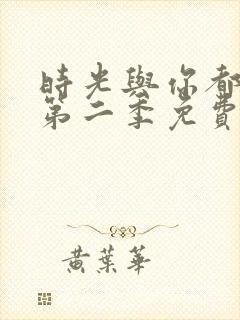 時光與你都
第二季免費
黃葉華